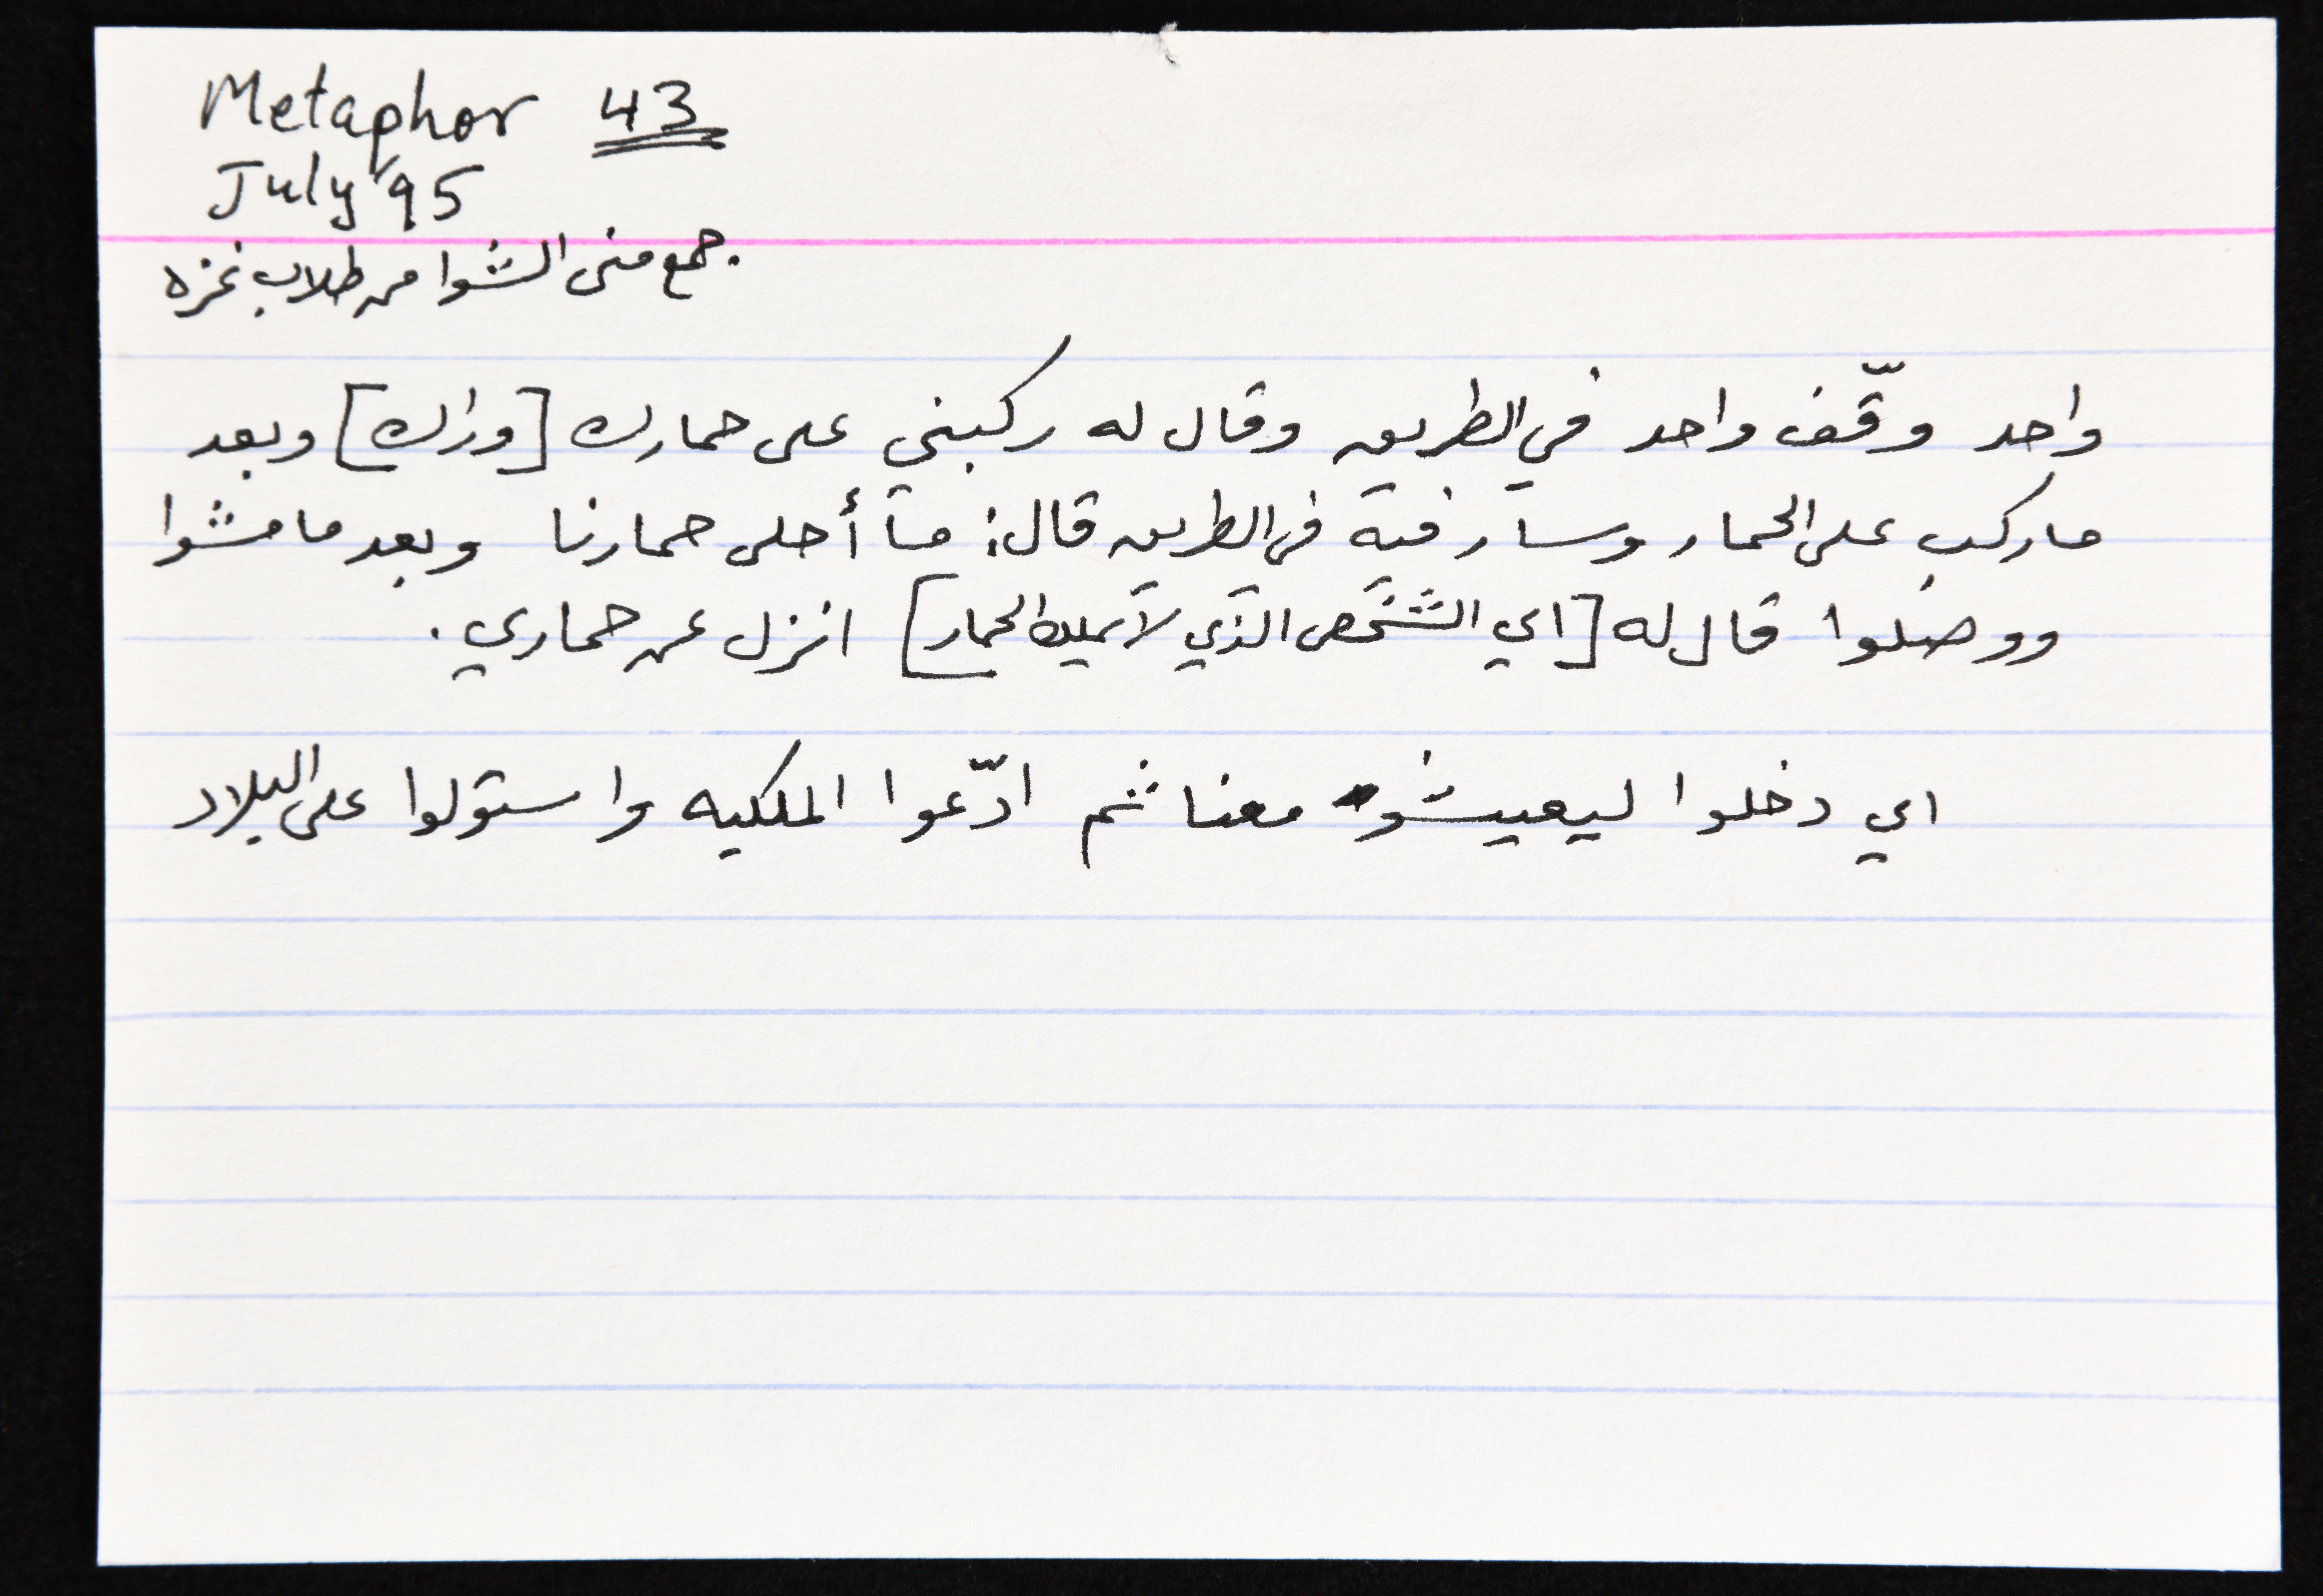 Metaphor 43
July '95
جمع منى الشوا من طلاب غزه
واحد وقّف واحد في الطريق وقال له ركبني على حمارك [وراك] وبعد
ما ركب على الحمار وسار فيه في الطريق قال: ما أحلى حمارنا وبعد ما مشوا
ووصلوا قال له [اي الشخص الذي لا يملك الحمار] انزل عن حماري.
اي دخلوا ليعيشوا معنا ثم ادّعوا الملكيه واستولوا على البلاد